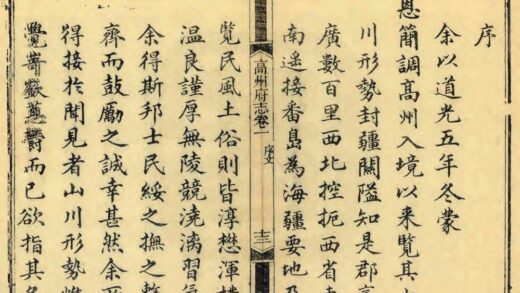 序
余以道光五年冬蒙
恩簡調高州入境以来覽其
川形勢封疆關隘知是郡
廣數百里西北控扼西省
南遥接番島為海疆要地
高州府志卷一 序文 十三
覽民風土俗則皆淳懋渾
温良謹厚無陵競澆漓習
余得斯邦士民綏之撫之
齊而鼓勵之誠幸甚然余
得接於聞見者山川形勢
覺
而已欲指其